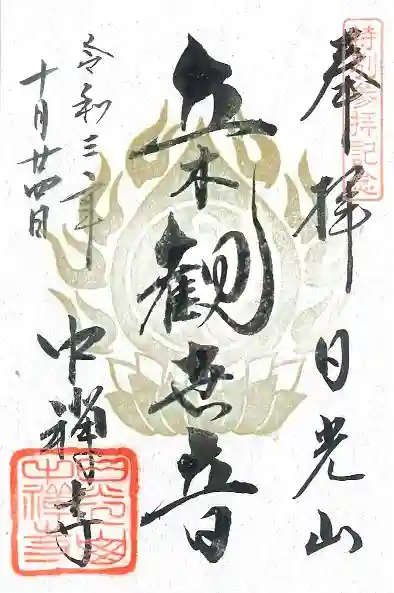 特別参拝記念
奉拝 日光山
立木観世音
令和三年
十月廿四日
中禅寺